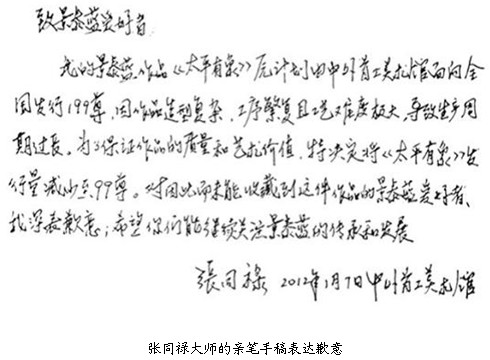 致景泰蓝爱好者
我的景泰蓝作品《太平有象》原计划由中外首工美术馆面向全
国发行199尊,因作品造型复杂、工序繁复且工艺难度极大,导致生产周
期过长。为了保证作品的质量和艺术价值,特决定将《太平有象》发
行量减少至99尊。对因此而未能收藏到这件作品的景泰蓝爱好者、
我深表歉意;希望你们能继续关注景泰蓝的传承和发展
張同禄 2012年1月7日中外首工美术馆
张同禄大师的亲笔手稿表达歉意